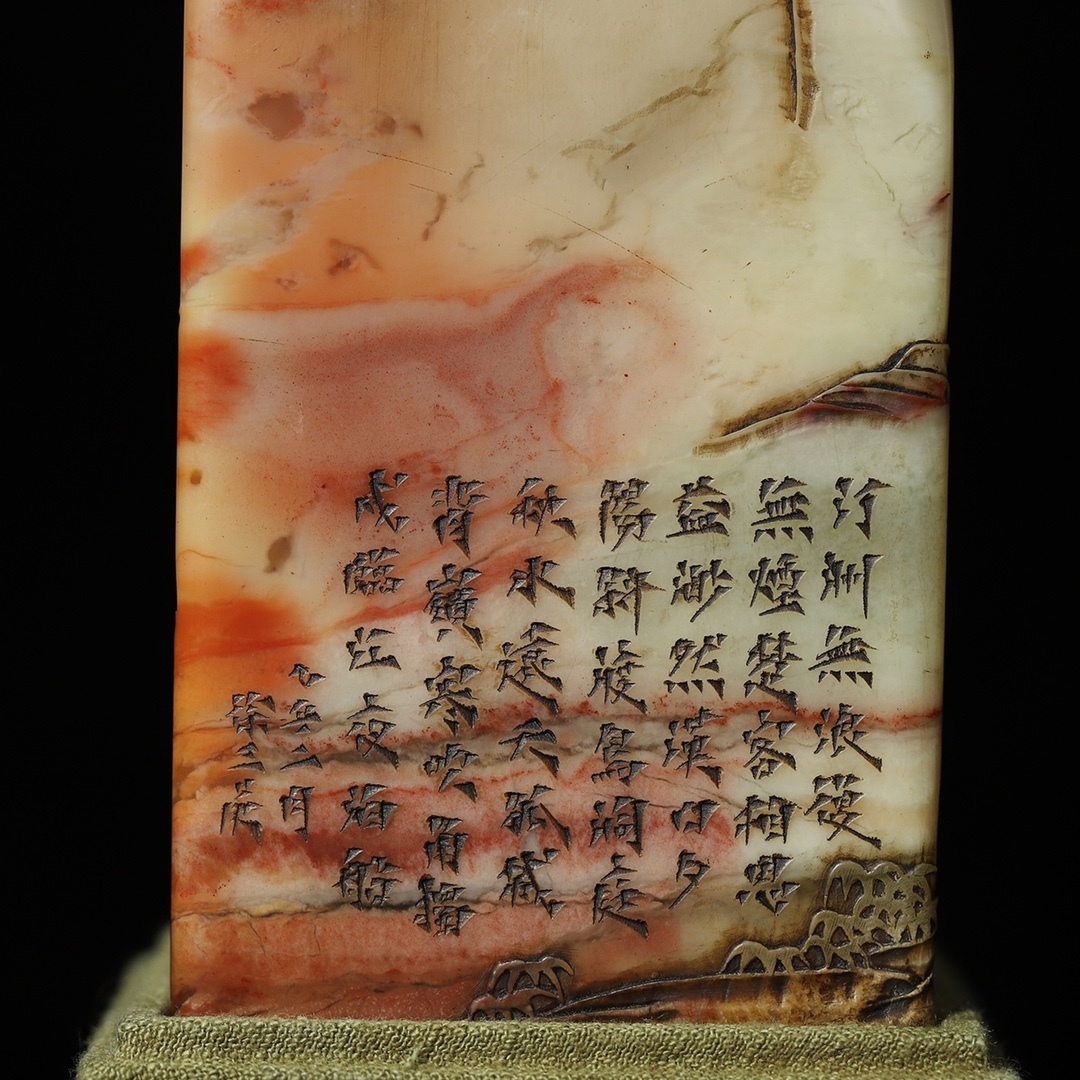 汀洲無浪復
無煙楚客相思
益渺然漢口夕
陽斜渡鳥洞庭
秋水遠天孤城
背嶺寒吹角獨
戍臨江夜泊船
二月